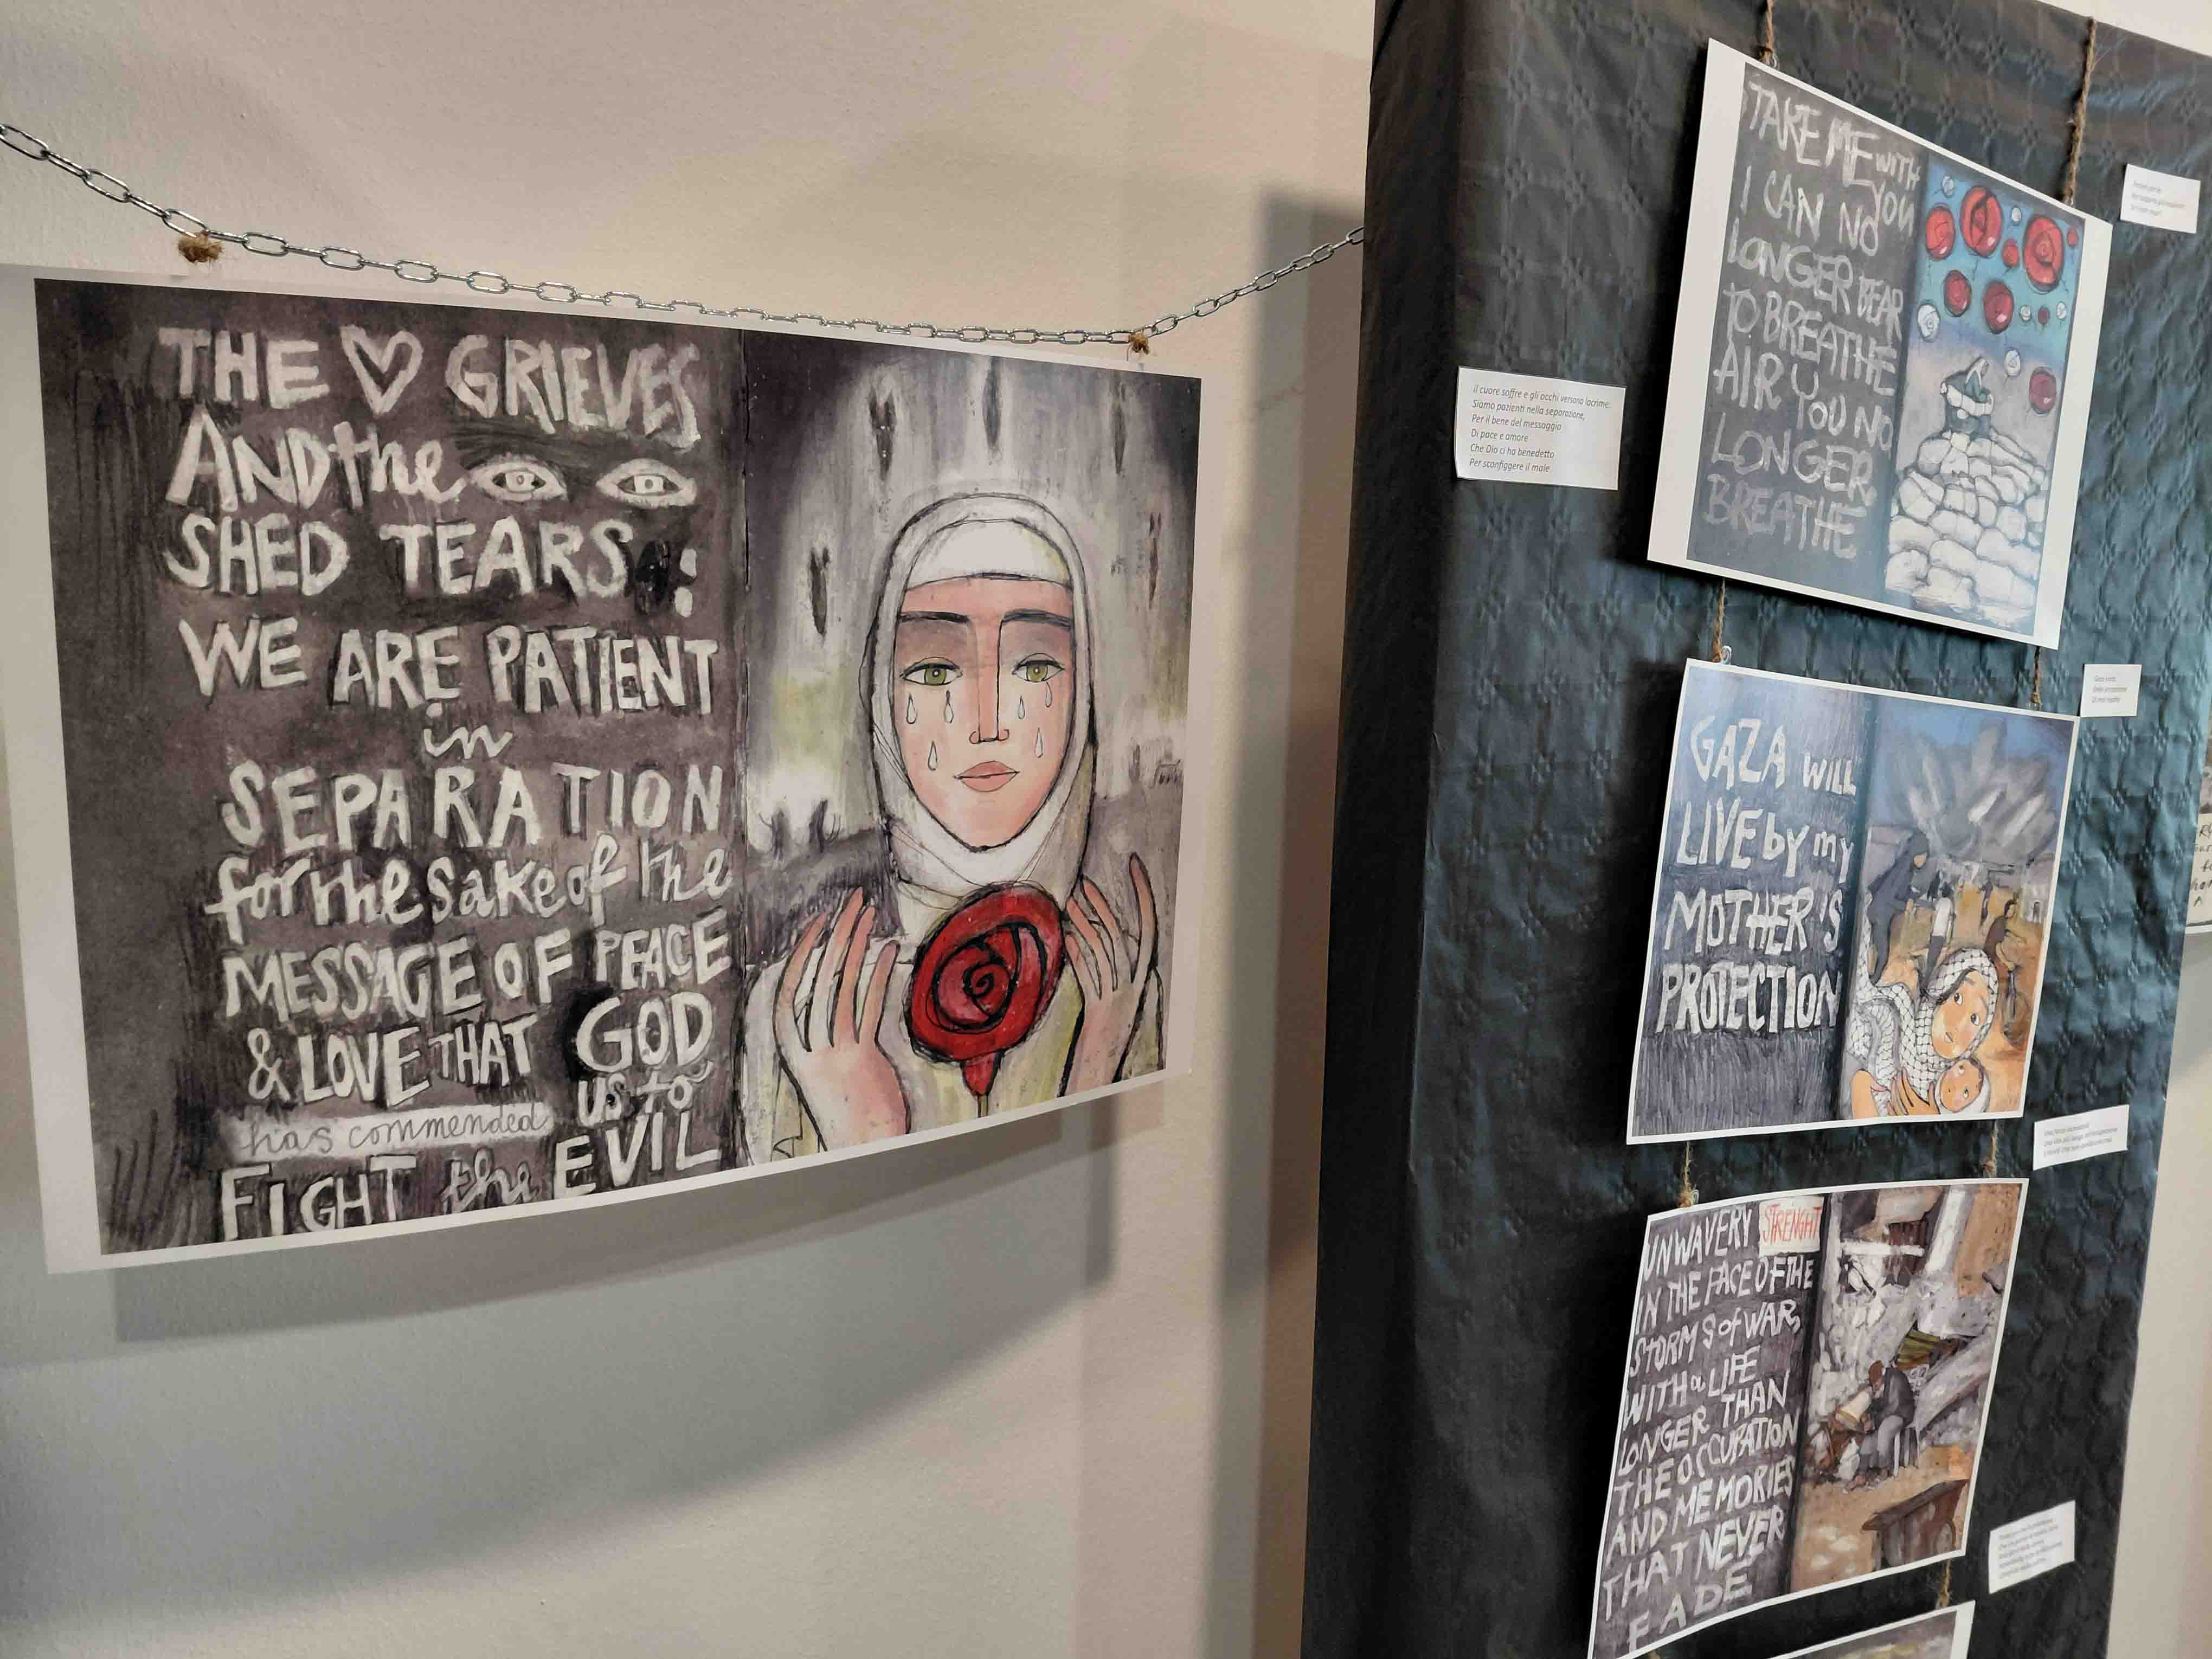 THE GRIEVES
AND the
SHED TEARS:
WE ARE PATIENT
in
SEPARATION
for the sake of the
MESSAGE OF PEACE
& LOVE THAT GOD
has commended us to
FIGHT the EVIL
il cuore soffre e gli occhi versano lacrime:
Siamo pazienti nella separazione,
Per il bene del messaggio
Di pace e amore
Che Dio ci ha benedetto
Per sconfiggere il male.
TAKE ME WITH
YOU
I CAN NO
LONGER BEAR
TO BREATHE
AIR YOU NO
LONGER
BREATHE
GAZA WILL
LIVE by my
MOTHER'S
PROTECTION
UNWAVERY STRENGHT
IN THE FACE OF THE
STORMS of WAR,
WITH a LIFE
LONGER THAN
THE OCCUPATION
AND MEMORIES
THAT NEVER
FADE